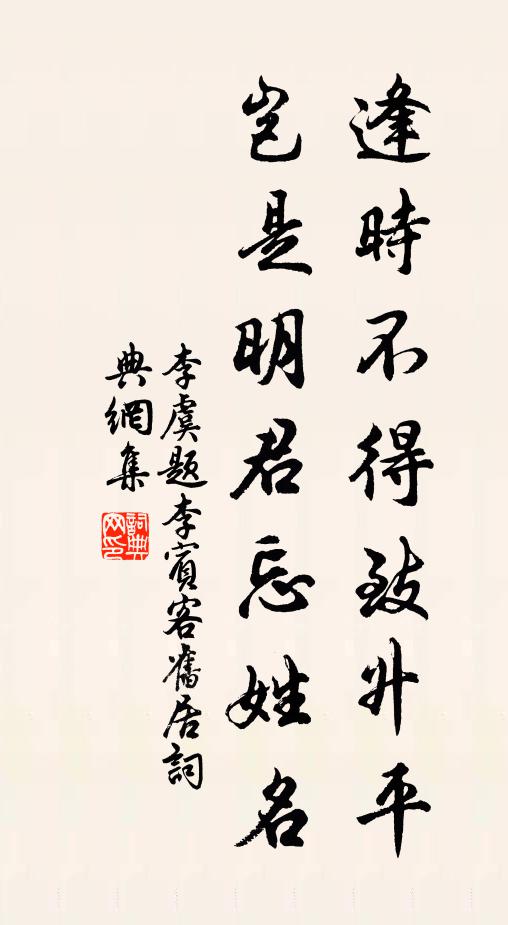 逢時不得致升平
豈是明君忘姓名
李虞題李賓客舊居詞
典網集
詞典網印